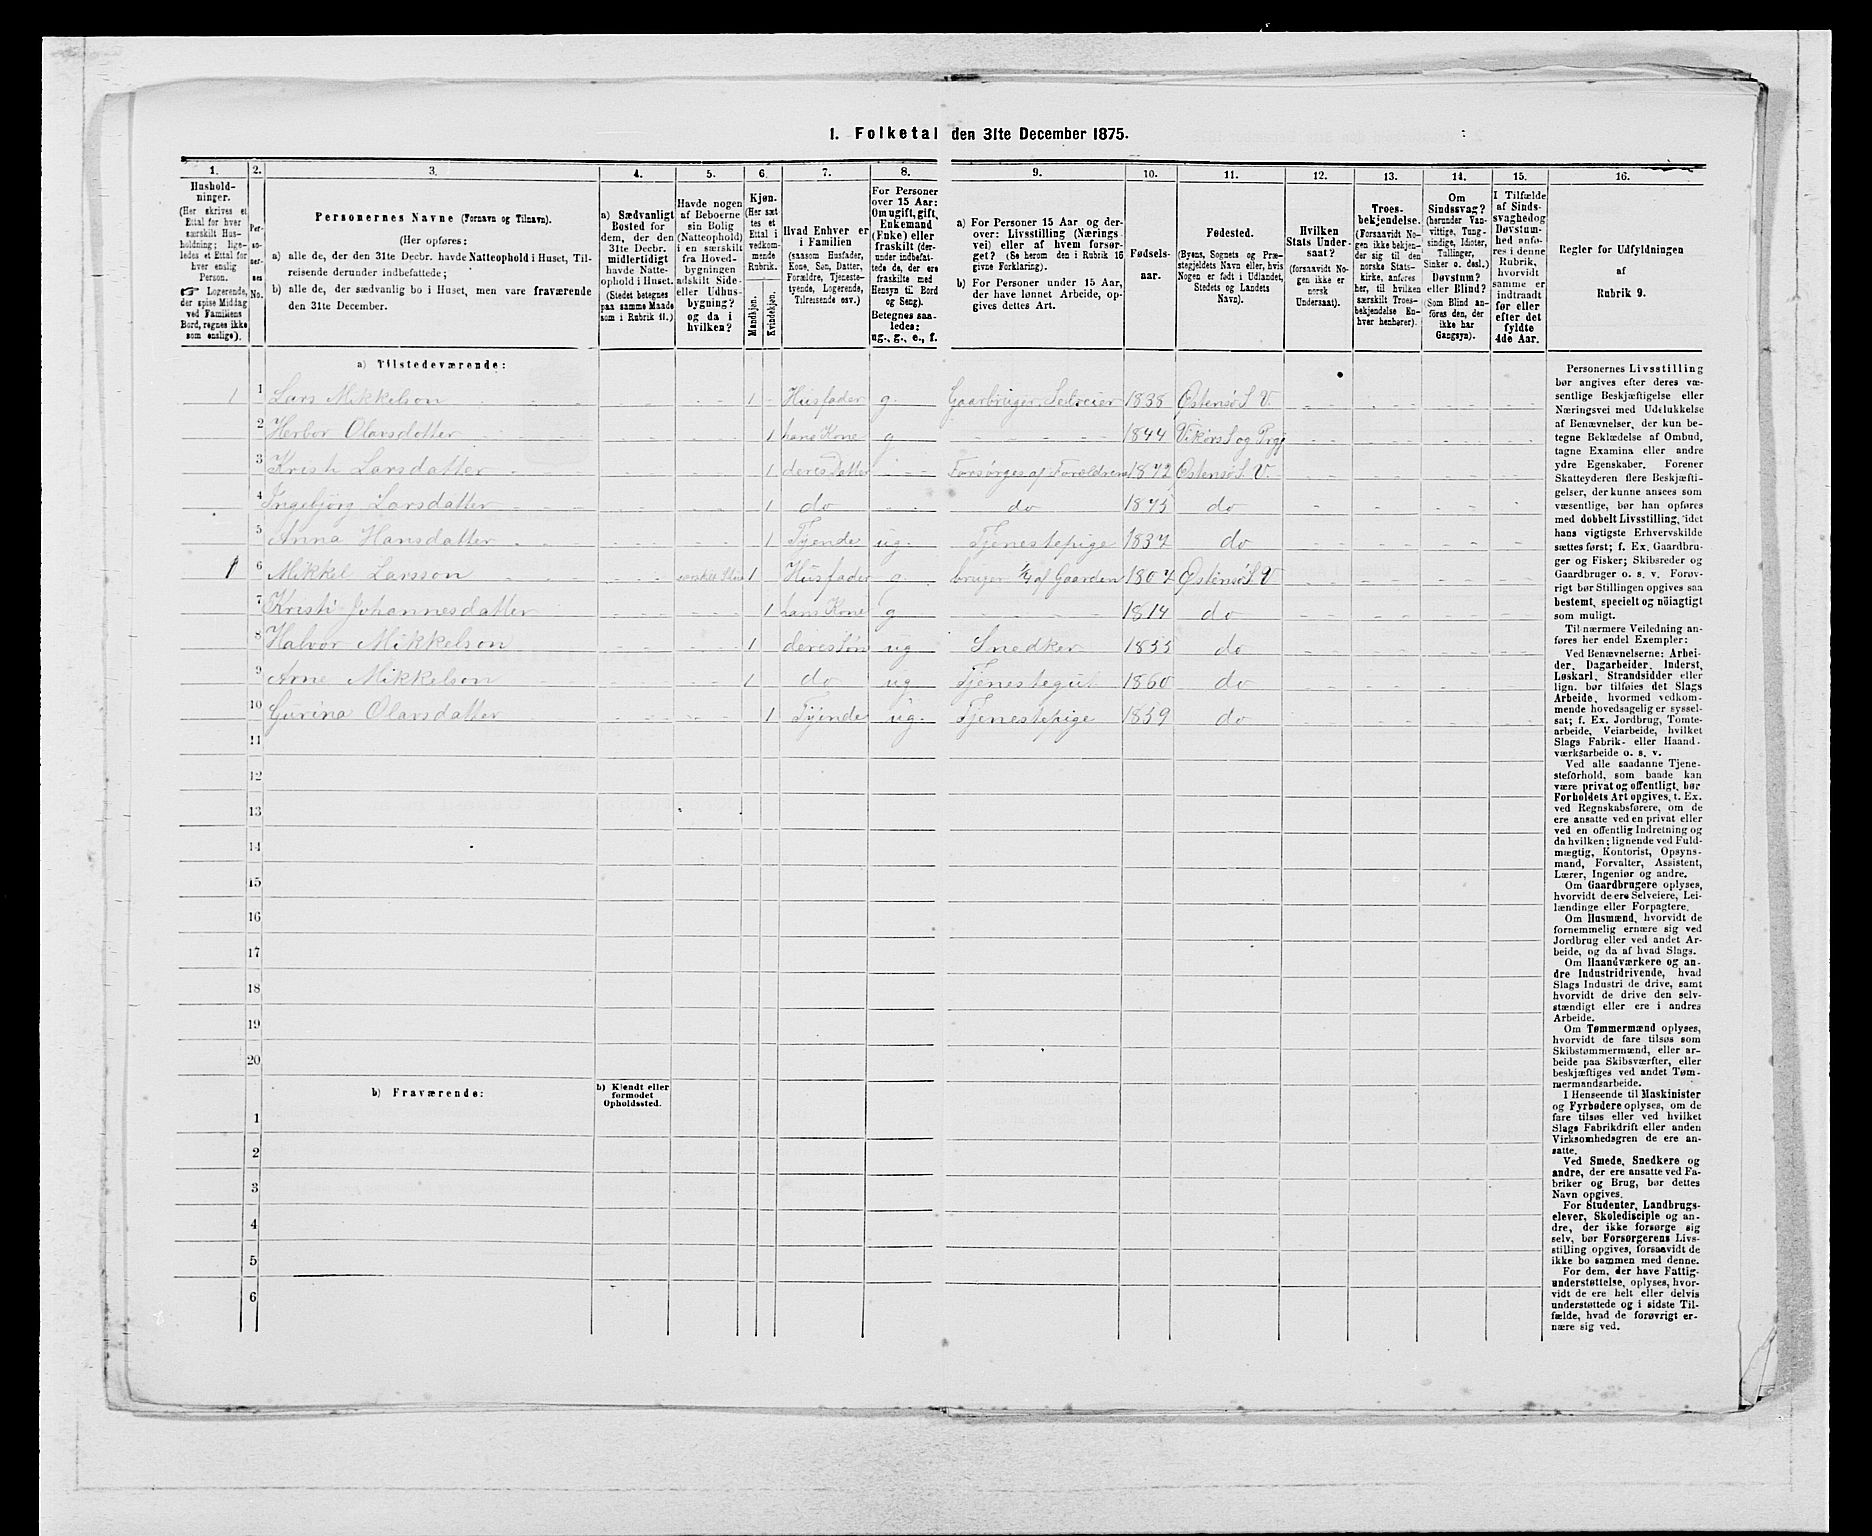 1. Folketal den 31te December 1875.
1. 2. 3. 4. 5. 6. 7. 8. 9. 10. 11. 12. 13. 14. 15. 16.
Hushold-
ninger.
(Her skrives et
Ettal for hver
særskilt Hus-
holdning; lige-
ledes et Ettal for
hver enslig
Person.
☞ Logerende,
der spise Middag
ved Familiens
Bord, regnes ikke
som enslige).
Per-
so-
ner-
nes
No.
Personernes Navne (Fornavn og Tilnavn).
(Her opføres:
a) alle de, der den 31te Decbr. havde Natteophold i Huset, Til-
reisende derunder indbefattede;
b) alle de, der sædvanlig bo i Huset, men vare fraværende
den 31te December.
a) Sædvanligt
Bosted for
dem, der den
31te Decbr.
midlertidigt
havde Natte-
ophold i Huset.
(Stedet betegnes
paa samme Maade
som i Rubrik 11.)
Havde nogen
af Beboerne
sin Bolig
(Natteophold)
i en særskilt
fra Hoved-
bygningen
adskilt Side-
eller Udhus-
bygning?
og da i
hvilken?
Kjøn.
(Her sæt
tes et
Ettal i
vedkom-
mende
Rubrik.
Mandkjøn.
Kvindekjøn.
Hvad Enhver er
i Familien
(saasom Husfader,
Kone, Søn, Datter,
Forældre, Tjeneste-
tyende, Logerende,
Tilreisende osv.)
For Personer
over 15 Aar:
Om ugift, gift,
Enkemand
(Enke) eller
fraskilt (der-
under indbefat-
tede de, der ere
fraskilte med
Hensyn til Bord
og Seng).
Betegnes saa-
ledes:
ug., g., e., f.
a) For Personer 15 Aar og der-
over: Livsstilling (Nærings
vei) eller af hvem forsør-
get? (Se herom den i Rubrik 16
givne Forklaring).
b) For Personer under 15 Aar,
der have lønnet Arbeide, op-
gives dettes Art.
Fødsels-
aar.
Fødested.
(Byens, Sognets og Præ-
stegjeldets Navn eller, hvis
Nogen er født i Udlandet,
Stedets og Landets
Navn).
Hvilken
Stats Under-
saat?
(forsaavidt No-
gen ikke er
norsk
Undersaat).
Troes-
bekjendelse.
(Forsaavidt No-
gen ikke bekjen-
der sig til den
norske Stats-
kirke, anføres
her, til hvilken
særskilt Troes-
bekjendelse En-
hver henhører).
Om
Sindssvag?
(herunder Van-
vittige, Tung-
sindige, Idioter,
Tullinger,
Sinker o. desl.)
Døvstum?
eller Blind?
(Som Blind an-
føres den, der
ikke har
Gangsyn).
I Tilfælde
af Sinds-
svaghed og
Døvstum-
hed anfø-
res i denne
Rubrik,
hvorvidt
samme er
indtraadt
før eller
efter det
fyldte
4de Aar.
Regler for Udfyldningen
af
Rubrik 9.
a) Tilstedeværende:
1 1 Lars Mikkelson 1 Husfader g. Gaarbruger, Selveier 1838 Østensø S. V.
2 Herbor Olavsdatter 1 hans Kone g 1844 Vikørs S og Prgj
3 Kristi Larsdatter 1 deres Datter Forsørges af Forældrene 1872 Østensø S. V.
4 Ingebjörg Larsdatter 1 do do 1875 do
5 Anna Hansdatter 1 Tjende ug. Tjenestepige 1837 do
1 6 Mikkel Larsson 1 Husfader g. bruger ¼ af Gaarden 1807 Østensø S. V
7 Kristi Johannesdatter 1 hans Kone g 1814 do
8 Halvor Mikkelson 1 deres Søn ug Snedker 1855 do
9 Arne Mikkelson 1 do ug Tjenestegut 1860 do
10 Gurina Olavsdatter 1 Tjende ug. Tjenestepige 1859 do
11
12
13
14
15
16
17
18
19
20
b) Fraværende:
b) Kjendt eller
formodet
Opholdssted.
1
2
3
4
5
6
Personernes Livsstilling
bør angives efter deres væ-
sentlige Beskjæftigelse eller
Næringsvei med Udelukkelse
af Benævnelser, der kun be-
tegne Beklædelse af Ombud,
tagne Examina eller andre
ydre Egenskaber. Forener
Skatteyderen flere Beskjæfti-
gelser, der kunne ansees som
væsentlige, bør han opføres
med dobbelt Livsstilling, idet
hans vigtigste Erhvervskilde
sættes først; f. Ex. Gaardbru-
ger og Fisker; Skibsreder og
Gaardbruger o. s. v. Forøv-
rigt bør Stillingen opgives saa
bestemt, specielt og nöiagtigt
som muligt.
Til nærmere Veiledning an-
føres her endel Exempler:
Ved Benævnelserne: Arbei-
der, Dagarbeider, Inderst,
Løskarl, Strandsidder eller
lign. bør tilføies det Slags
Arbeide, hvormed vedkom-
mende hovedsagelig er syssel-
sat; f. Ex. Jordbrug, Tomte-
arbeide, Veiarbeide, hvilket
Slags Fabrik- eller Haand-
værksarbeide o. s. v.
Ved alle saadanne Tjene-
steforhold, som baade kan
være privat og offentligt, bør
Forholdets Art opgives, t. Ex.
ved Regnskabsførere, om de
ere ansatte ved en privat eller
ved en offentlig Indretning og
da hvilken; lignende ved Fuld-
mægtig, Kontorist, Opsyns-
mand, Forvalter, Assistent,
Lærer, Ingeniør og andre.
Om Gaardbrugere oplyses,
hvorvidt de ere Selveiere, Lei-
lændinge eller Forpagtere.
Om Husmænd, hvorvidt de
fornemmelig ernære sig ved
Jordbrug eller ved andet Ar-
beide, og da af hvad Slags.
Om Haandværkere og an-
dre Industridrivende, hvad
Slags Industri de drive, samt
hvorvidt de drive den selv-
stændigt eller ere i andres
Arbeide.
Om Tømmermænd oplyses,
hvorvidt de fare tilsøs som
Skibstømmermænd, eller ar-
beide paa Skibsværfter, eller
beskjæftiges ved andet Tøm-
mermandsarbeide.
I Henseende til Maskinister
og Fyrbødere oplyses, om de
fare tilsøs eller ved hvilket
Slags Fabrikdrift eller anden
Virksomhedsgren de ere an-
satte.
Ved Smede, Snedkere og
andre, der ere ansatte ved Fa-
briker og Brug, bør dettes
Navn opgives.
For Studenter, Landbrugs-
elever, Skoledisciple og an-
dre, der ikke forsørge sig
selv, bør Forsørgerens Livs-
stilling opgives, forsaavidt de
ikke bo sammen med denne.
For dem, der have Fattig-
understøttelse, oplyses, hvor-
vidt de ere helt eller delvis
understøttede og i sidste Til-
fælde, hvad de forøvrigt er-
nære sig ved.